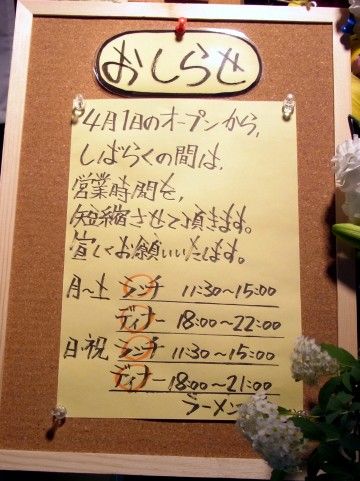 おしらせ
4月1日のオープンから,
しばらくの間は,
営業時間を,
短縮させて頂きます。
宜しくお願いいたします。
月~土 ランチ 11:30~15:00
ディナー 18:00~22:00
日・祝 ランチ 11:30~15:00
ディナー 18:00~21:00
ラーメン